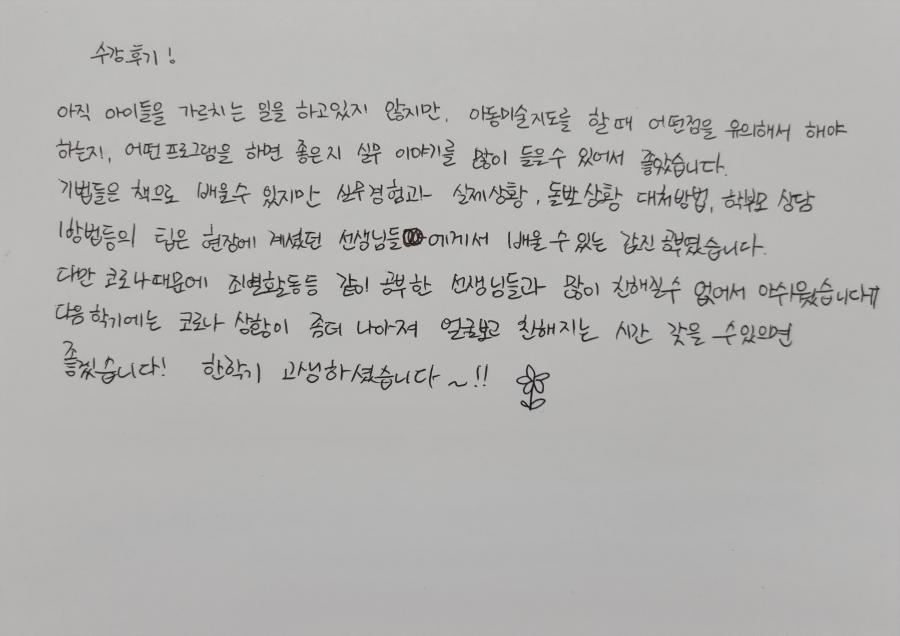 수강후기!
아직 아이들을 가르치는 일을 하고있지 않지만, 아동미술지도를 할때 어떤점을 유의해서 해야
하는지, 어떤프로그램을 하면 좋은지 실무 이야기를 많이 들을수 있어서 좋았습니다.
기법들은 책으로 배울수 있지만 실무경험과 실제상황, 돌발상황 대처방법, 학부모 상담
방법등의 팁은 현장에 계셨던 선생님들에게서 배울 수 있는 값진 공부였습니다.
다만 코로나때문에 조별활동등 같이 공부한 선생님들과 많이 친해질수 없어서 아쉬웠습니다ㅠ
다음학기에는 코로나 상황이 좀더 나아져 얼굴보고 친해지는 시간 갖을 수있으면
좋겠습니다! 한학기 고생하셨습니다~!!